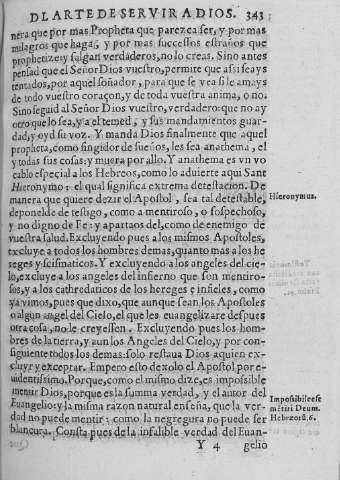 DL ARTE DE SERVIR A DIOS. 343
nera que por mas Propheta que parezca ser, y por mas
milagros que haga, y por mas successos estraños que
prophetize, y salgan verdaderos, no lo creas. Sino antes
pensad que el Señor Dios vuestro, permite que assi seays
tentados, por aquel soñador, para que se vea si le amays
de todo vuestro coraçon, y de toda vuestra anima, o no.
Sino seguid al Señor Dios vuestro, verdadero: que no ay
otro que lo sea, y a el temed, y sus mandamientos guar-
dad, y oyd su voz. Y manda Dios finalmente que aquel
propheta, como fingidor de sueños, les sea anathema, el
y todas sus cosas: y muera por allo. Y anathema es vn vo
cablo especial a los Hebreos, como lo aduierte aqui Sant
Hieronymo: el qual significa extrema detestacion. De
manera que quiere dezir el Apostol, sea tal detestable,
Hieronymus.
deponelde de testigo, como a mentiroso, o sospechoso,
y no digno de Fe: y apartaos del, como de enemigo de
vuestra salud. Excluyendo pues a los mismos Apostoles,
excluye a todos los hombres demas, quanto mas a los he
reges y scismaticos. Y excluyendo a los angeles del cie-
lo, excluye a los angeles del infierno que son mentiro-
sos, y a los cathredaticos de los hereges e infieles, como
ya vimos, pues que dixo, que aunque sean los Apostoles
o algun angel del Cielo, el que les euangelizare despues
otra cosa, no le creyessen. Excluyendo pues los hom-
bres de la tierra, y aun los Angeles del Cielo, y por con-
siguiente todos los demas: solo restaua Dios a quien ex-
cluyr y exceptar. Empero esto dexolo el Apostol por e-
uidentissimo. Porque, como el mismo dize, es impossible
mentir Dios, porque es la summa verdad, y el autor del
Euangelio: y la misma razon natural enseña, que la ver-
dad no puede mentir: como la negregura no puede ser
blancura. Consta pues de la infalible verdad del Euan-
Impossibile est
metiri Deum.
Hebræorū. 6.
Y 4 gelio